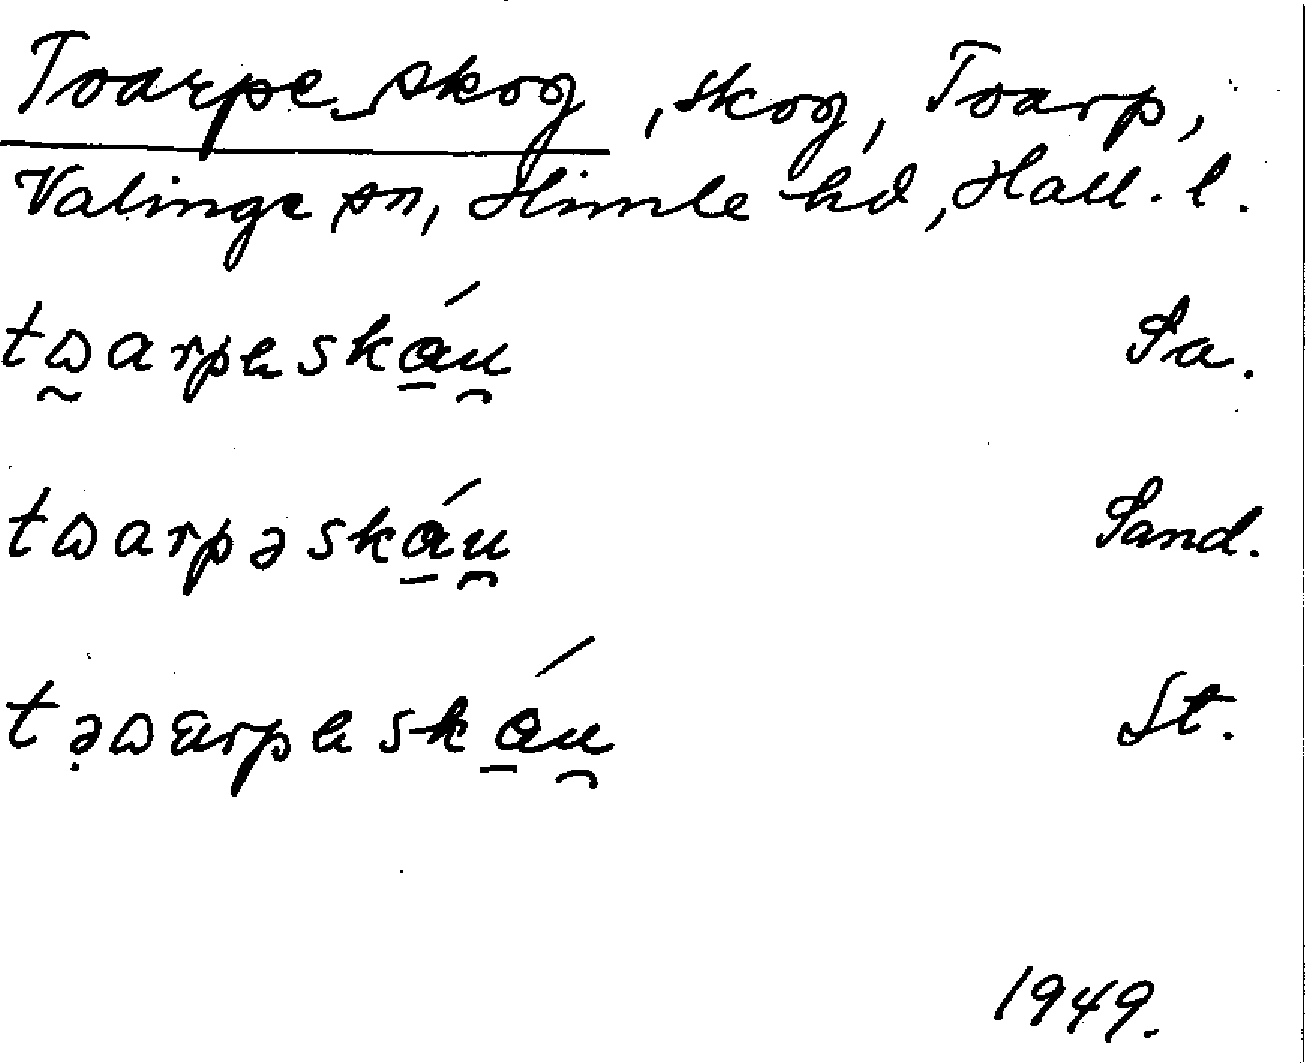 Toarpe skog, skog, Toarp,
Valinge sn, Himle hd, Hall. l.
tωarpeskáu Sa.
tωarpəskáu Sand.
təωarpeskáu St.
1949.